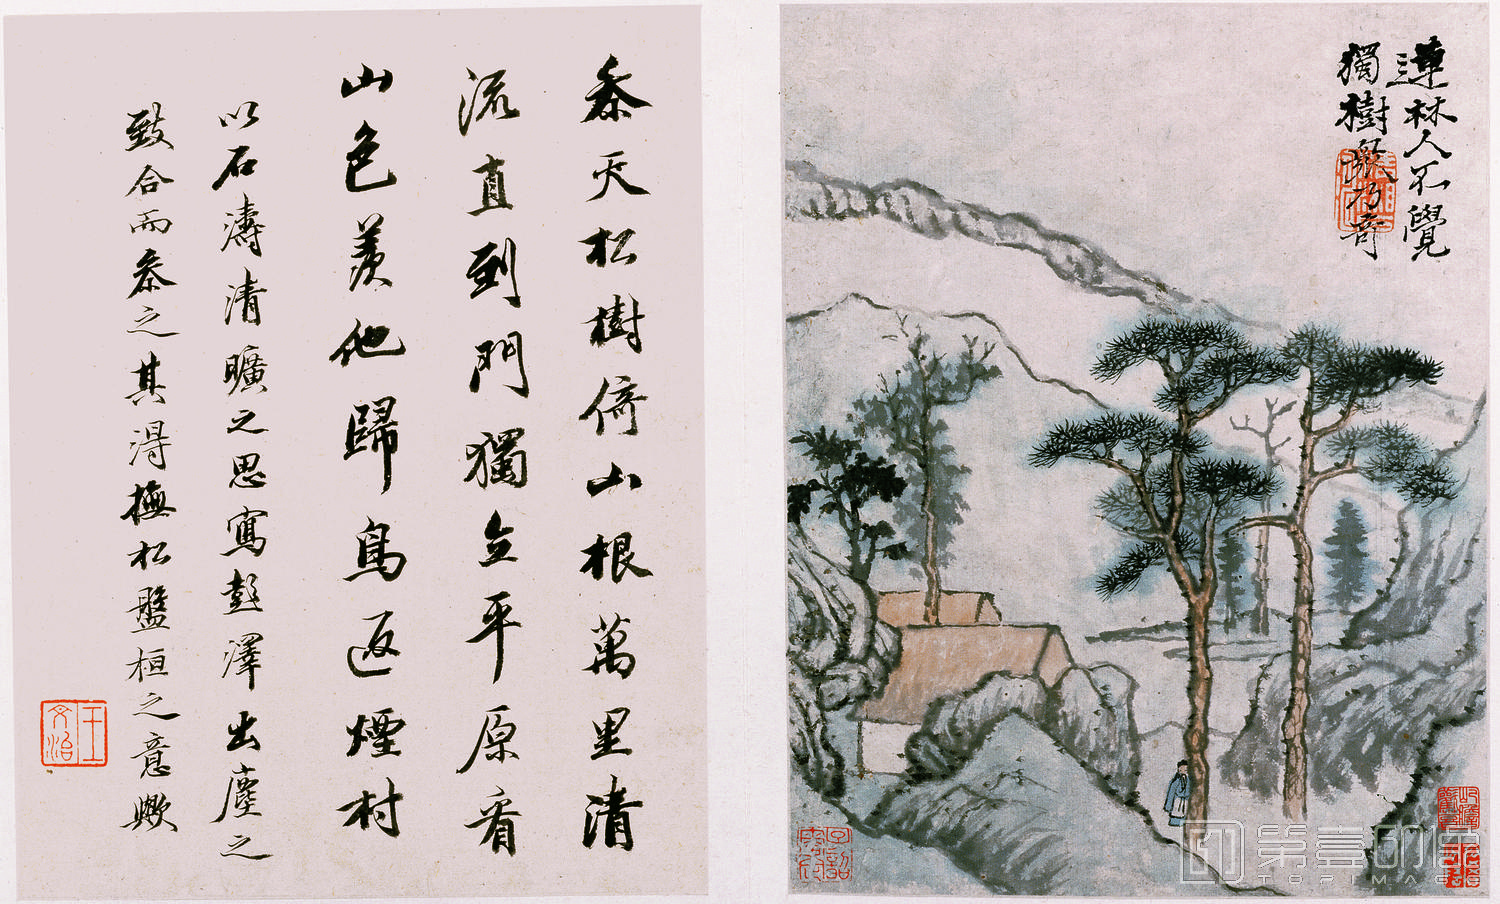 連林人不覺
獨樹眾乃奇
參天松樹倚山根萬里清
流直到門獨立平原看
山色羨他歸鳥返煙村
以石濤清曠之思寫彭澤出塵之
致合而參之其得撫松盤桓之意歟
王文治
第壹印象
TOPIMAGE